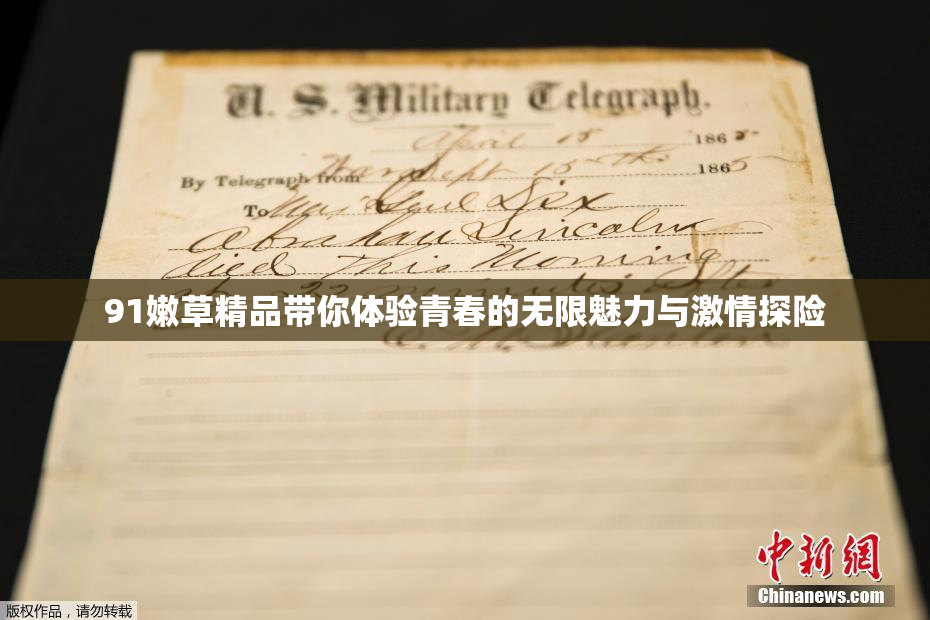 U. S. Military Telegraph.
April 15 1865
By Telegraph from War Dept 15th 1865
To Maj Genl Dix
Abraham Lincoln
died This Morning
at 22 minutes after
91嫩草精品带你体验青春的无限魅力与激情探险
E. M. Stanton
中新網
Chinanews.com
版权作品，请勿转载